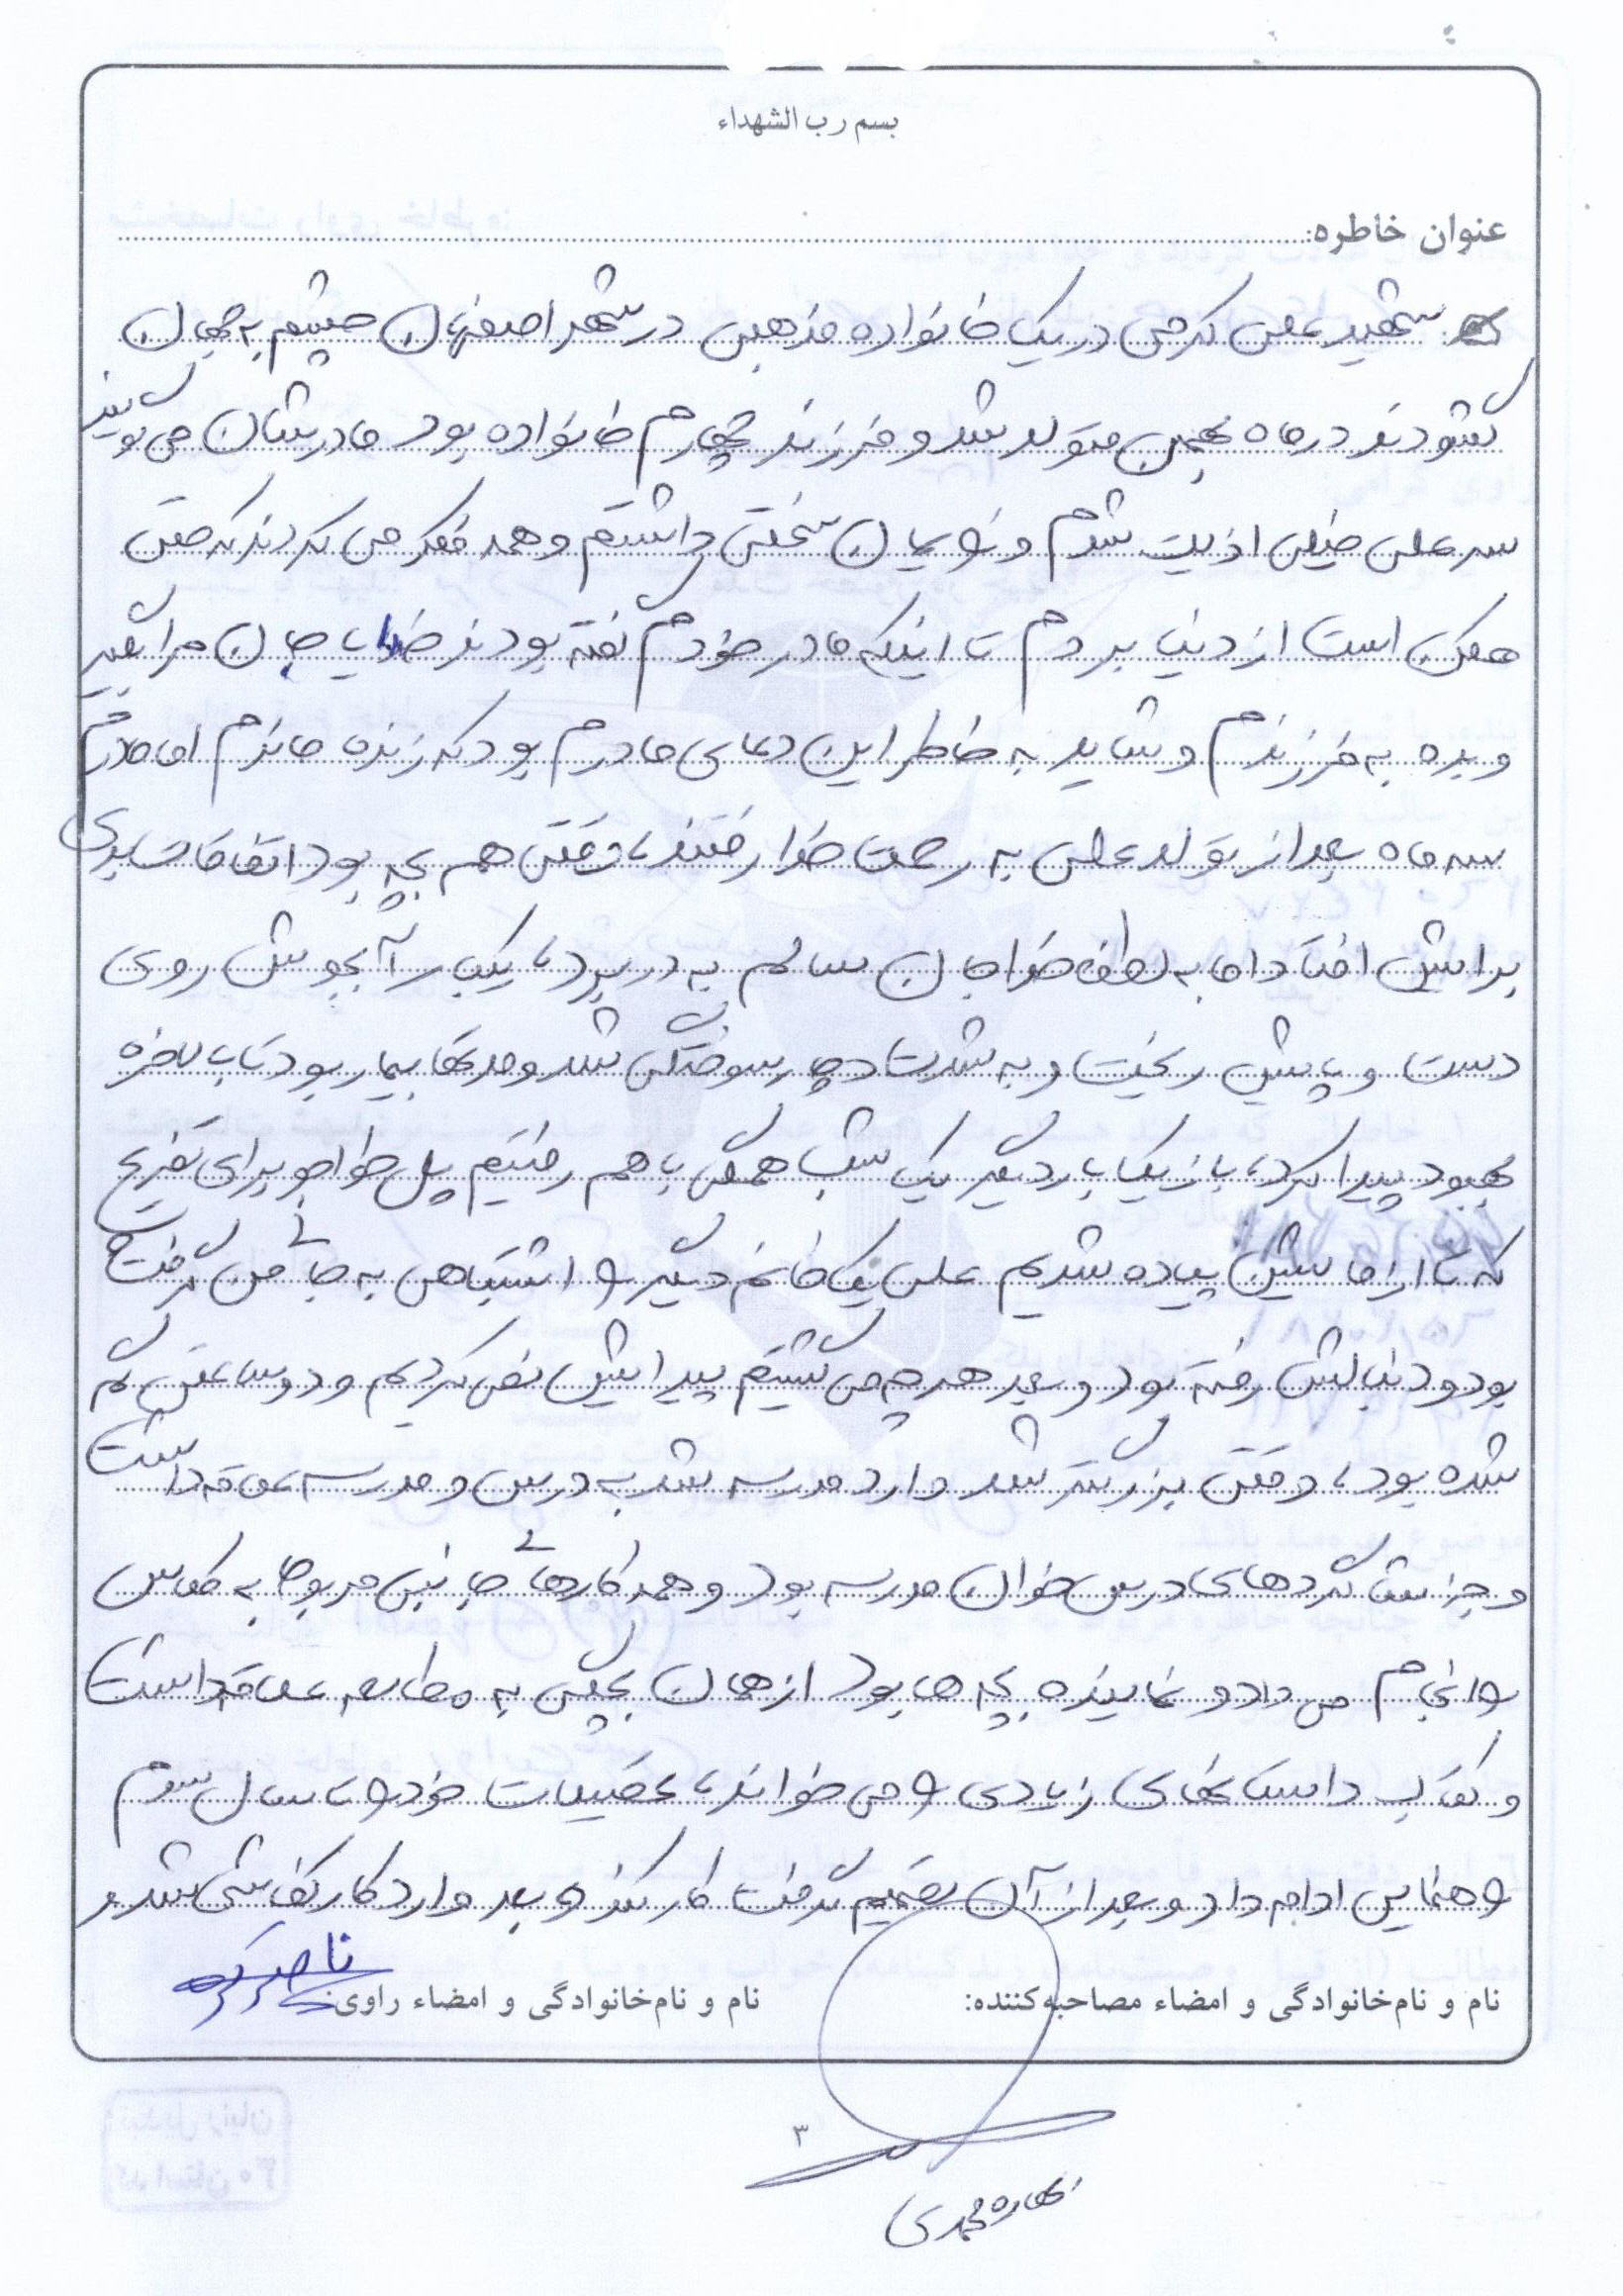 بسم رب الشهداء
عنوان خاطره:
شهید علی کرمی در یک خانواده مذهبی در شهر اصفهان چشم به جهان
گشودند در ماه بهمن متولد شد و فرزند چهارم خانواده بود مادرشان می گویند
سر علی خیلی اذیت شدم و زایمان سختی داشتم و همه فکر می کردند که حتی
ممکن است از دنیا بروم تا اینکه مادر خودم گفته بودند خدایا جان مرا بگیر
و بده به فرزندم و شاید به خاطر این دعای مادرم بود که زنده ماندم اما مادرم
سه ماه بعد از تولد علی به رحمت خدا رفتند، وقتی هم بچه بود اتفاقات بدی
برایش افتاد اما به لطف خدا جان سالم به در برد، یکبار آبجوش روی
دست و پایش ریخت و به شدت دچار سوختگی شد و مدتها بیمار بود تا بالاخره
بهبود پیدا کرد، باز یکبار دیگر یک شب همگی با هم رفتیم پل خواجو برای تفریح
که تا از ماشین پیاده شدیم علی یک خانم دیگر و اشتباهی به جای من گرفته
بود و دنبالش رفته بود و بعد هرچه می گشتیم پیدایش نمی کردیم و دو ساعتی گم
شده بود، وقتی بزرگتر شد وارد مدرسه شد به درس و مدرسه علاقه داشت
و جز شاگردهای درس خوان مدرسه بود و همه کارهای جانبی مربوط به کلاس
و انجام می داد و نماینده بچه ها بود از همان بچگی به مطالعه علاقه داشت
و کتاب داستانهای زیادی و می خواند، تحصیلات خود و تا سال سوم
و هنمایی ادامه داد و بعد از آن تصمیم گرفت کار کند و بعد وارد کار کفاشی شد و
نام و نام‌خانوادگی و امضاء مصاحبه‌کننده:
نام و نام‌خانوادگی و امضاء راوی:
۳
بهاره محمدی